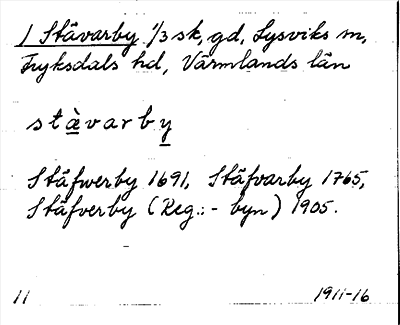 1 Stävarby 1/3 sk, gd, Lysviks sn,
Fryksdals hd, Värmlands län
stàvarby
Stäfwerby 1691, Stäfvarby 1765,
Stäfverby (Reg.:- byn) 1905.
11 1911-16